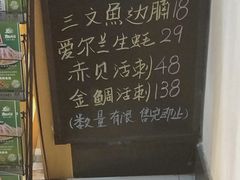 三文魚边腩18
爱尔兰生蚝29
赤贝活刺48
金鲷活刺138
(数量有限 售完即止)